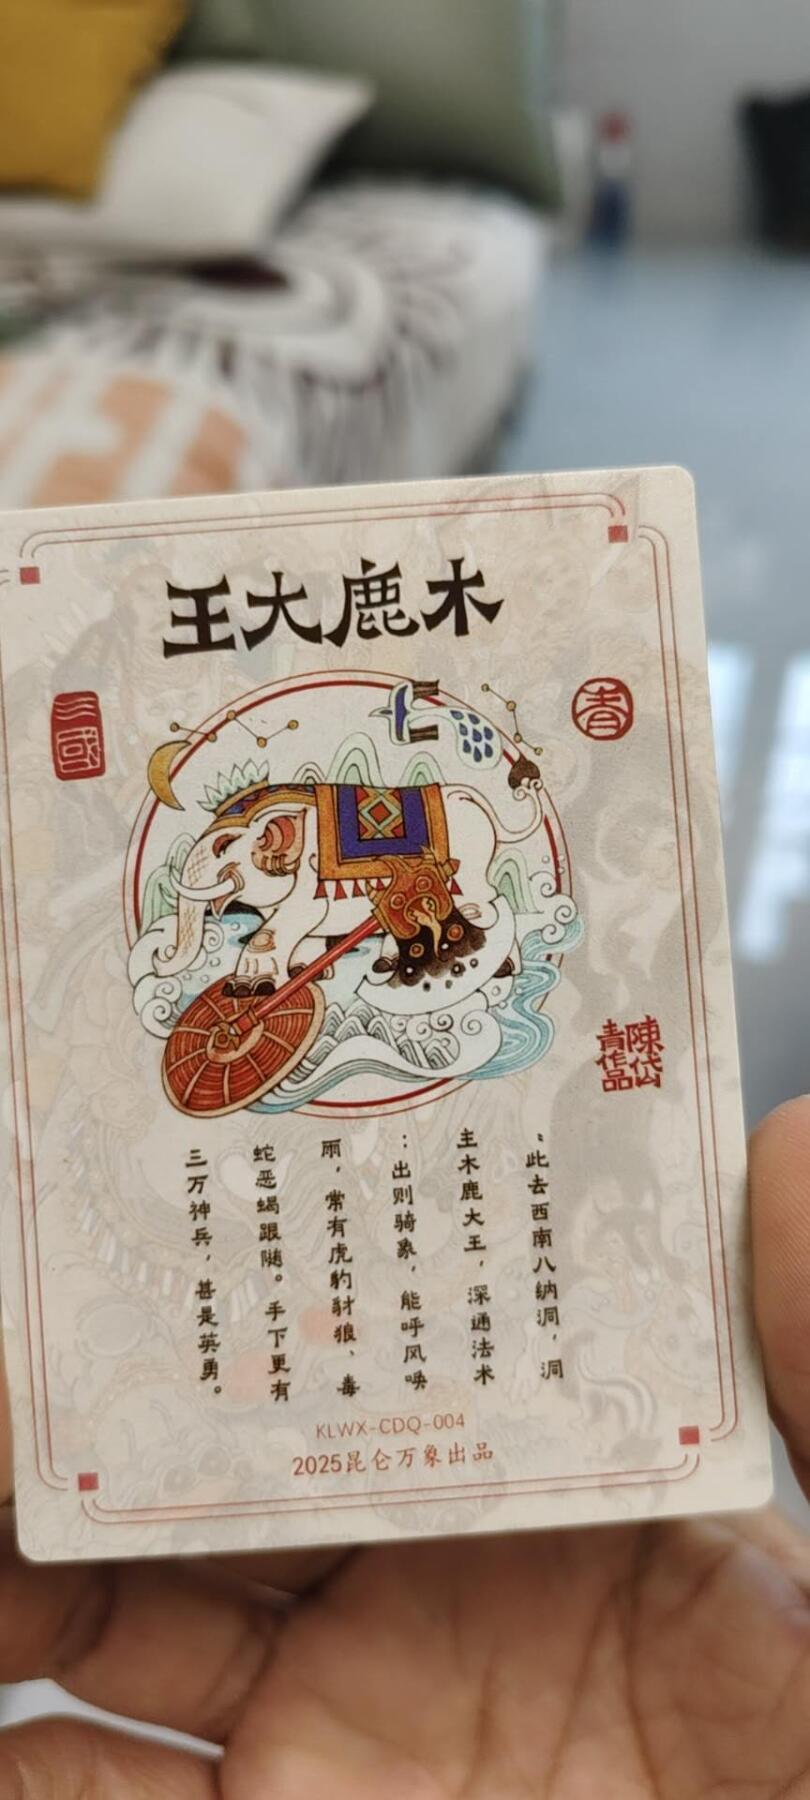 木鹿大王
三國
青
陳岱
青作品
“此去西南八纳洞，洞
主木鹿大王，深通法术
：出则骑象，能呼风唤
雨，常有虎豹豺狼、毒
蛇恶蝎跟随。手下更有
三万神兵，甚是英勇。
KLWX-CDQ-004
2025昆仑万象出品